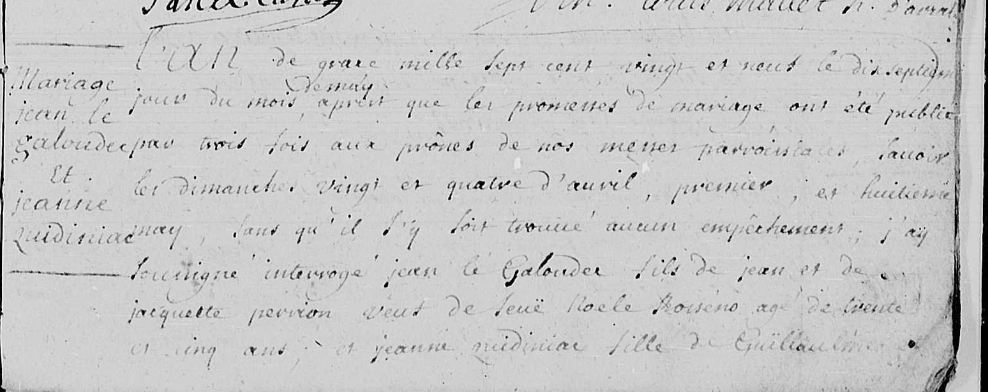 Mariage
jean le
galoudec
Et
jeanne
quidiniac
L'AN de grace mille sept cent vingt et neuf le dix septiem
de may
jour du mois, apreit que les promesses de mariage ont été publié
par trois fois aux prônes de nos messes parroissiales, savoir
les dimanches vingt et quatre d'auril, premier, et huitieme
may, sans qu'il s'y soit trouué aucun empêchement; j'ay
soussigné interrogé jean le Galoudec fils de jean et de
jacquette perrion veuf de feuë Noele agé de trente
et cinq ans, et jeanne quidiniac fille de